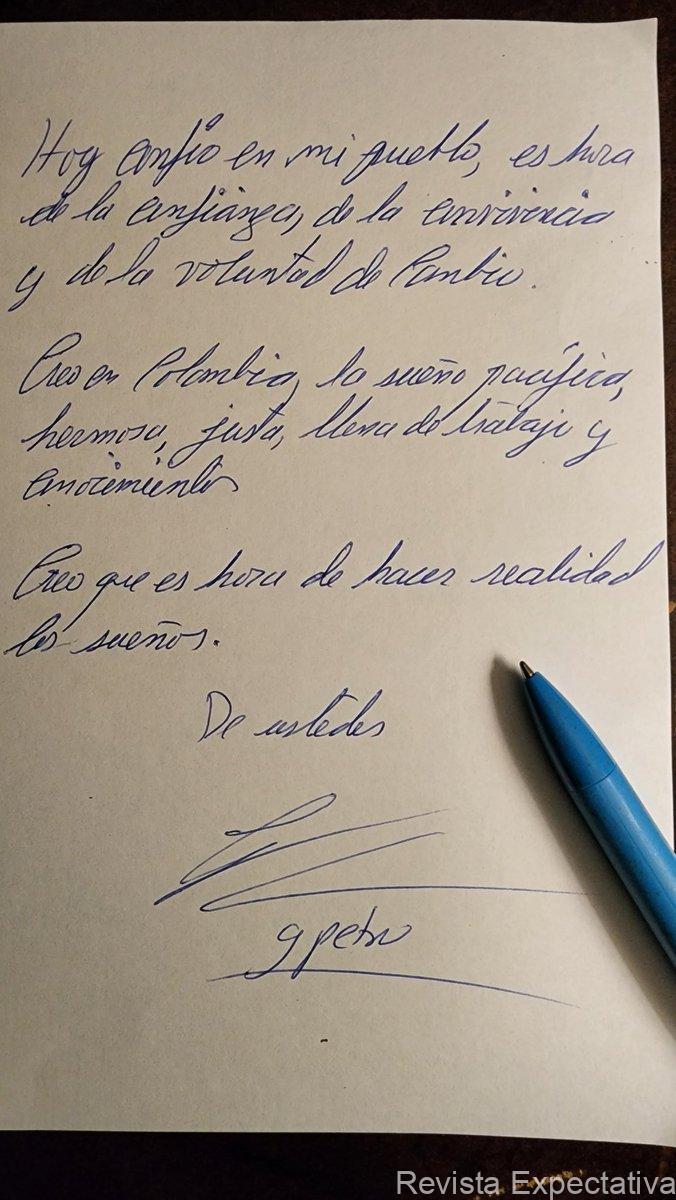 Hoy confío en mi pueblo, es hora
de la confianza, de la convivencia
y de la voluntad de Cambio.
Creo en Colombia, la sueño pacífica,
hermosa, justa, llena de trabajo y
conocimientos
Creo que es hora de hacer realidad
los sueños.
De ustedes
gpetro
Revista Expectativa